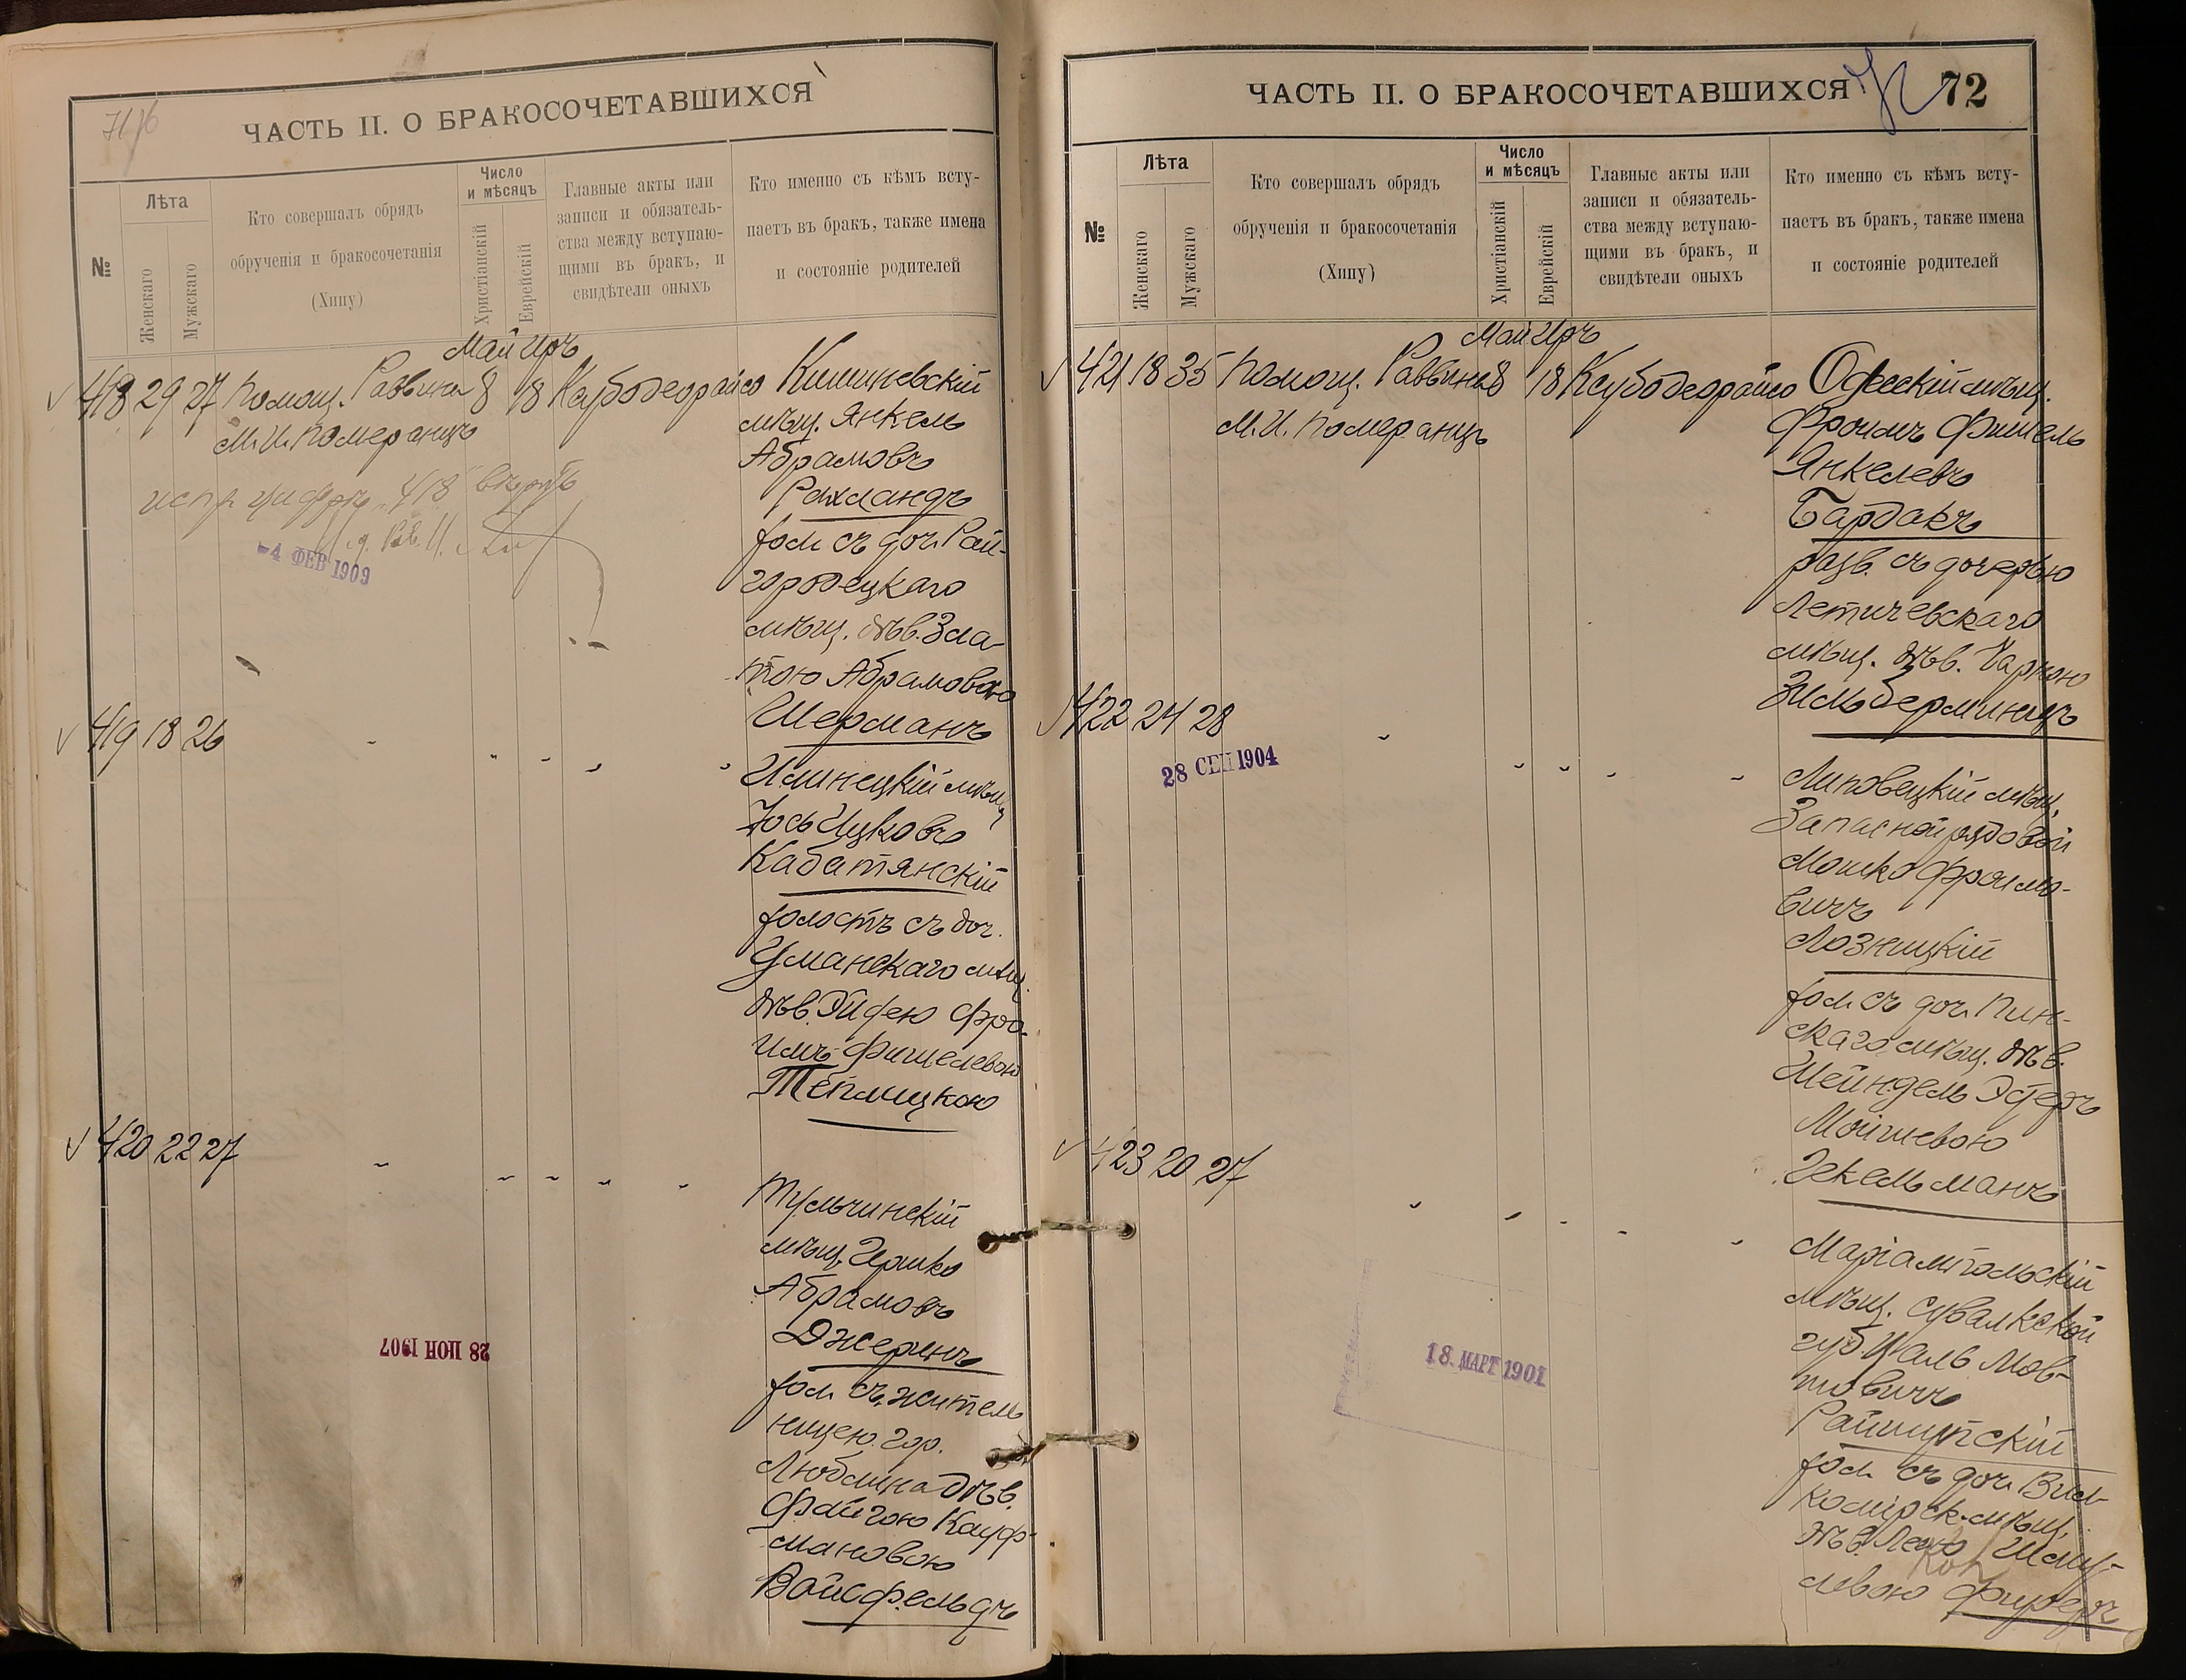 71/б
ЧАСТЬ II. О БРАКОСОЧЕТАВШИХСЯ
№
Лѣта
Женскаго
Мужскаго
Кто совершалъ обрядъ
обрученія и бракосочетанія
(Хипу)
Число
и мѣсяцъ
Христіанскій
Еврейскій
Главные акты или
записи и обязатель-
ства между вступаю-
щими въ бракъ, и
свидѣтели оныхъ
Кто именно съ кѣмъ всту-
паетъ въ бракъ, также имена
и состояніе родителей
Май Иръ
418 29 27 Помощ. Раввина 8 18 Ксубодеорайсо Кишиневскій
М. И. Померанцъ
мѣщ. Янкель
Абрамовъ
испр. цифръ „418" вѣрно
4 ФЕВ 1909
Рахландъ
хол. съ доч. Рай-
городецкаго
мѣщ. дѣв. Зла-
тою Абрамовою
Шерманъ
419 18 26
Илинецкій мѣщ.
Юсь Ицковъ
Кабатянскій
холостъ съ доч.
Уманскаго мѣщ.
дѣв. Эйдею Фро-
имъ Фишелевою
Теплицкою
420 22 27
Тульчинскій
мѣщ. Гершко
Абрамовъ
Джеринъ
28 ІЮН 1907
хол. съ житель
ницею гор.
Люблина дѣв.
Файгою Кауф-
мановою
Вайсфельдъ
ЧАСТЬ II. О БРАКОСОЧЕТАВШИХСЯ
72
№
Лѣта
Женскаго
Мужскаго
Кто совершалъ обрядъ
обрученія и бракосочетанія
(Хипу)
Число
и мѣсяцъ
Христіанскій
Еврейскій
Главные акты или
записи и обязатель-
ства между вступаю-
щими въ бракъ, и
свидѣтели оныхъ
Кто именно съ кѣмъ всту-
паетъ въ бракъ, также имена
и состояніе родителей
Май Иръ
421 18 35 Помощ. Раввина 8 18 Ксубодеорайсо Одесскій мѣщ.
М. И. Померанцъ
Фроимъ Фишель
Янкелевъ
Бардакъ
разв. съ дочерью
Летичевскаго
мѣщ. дѣв. Харною
Зильберминцъ
422 24 28
28 СЕН 1904
Липовецкій мѣщ.
Запасной рядовой
Мошко Фроимо-
вичъ
Лозницкій
хол. съ доч. Пин-
скаго мѣщ. дѣв.
Шейндель Эстеръ
Мойшевою
Гекельманъ
423 20 27
Маріампольскій
мѣщ. Сувалкской
губ. Шаль Мов-
шовичъ
18. МАРТ 1901
Райшупскій
хол. съ доч. Вил-
комірск. мѣщ.
дѣв. Леею Шму-
левою Фиреръ